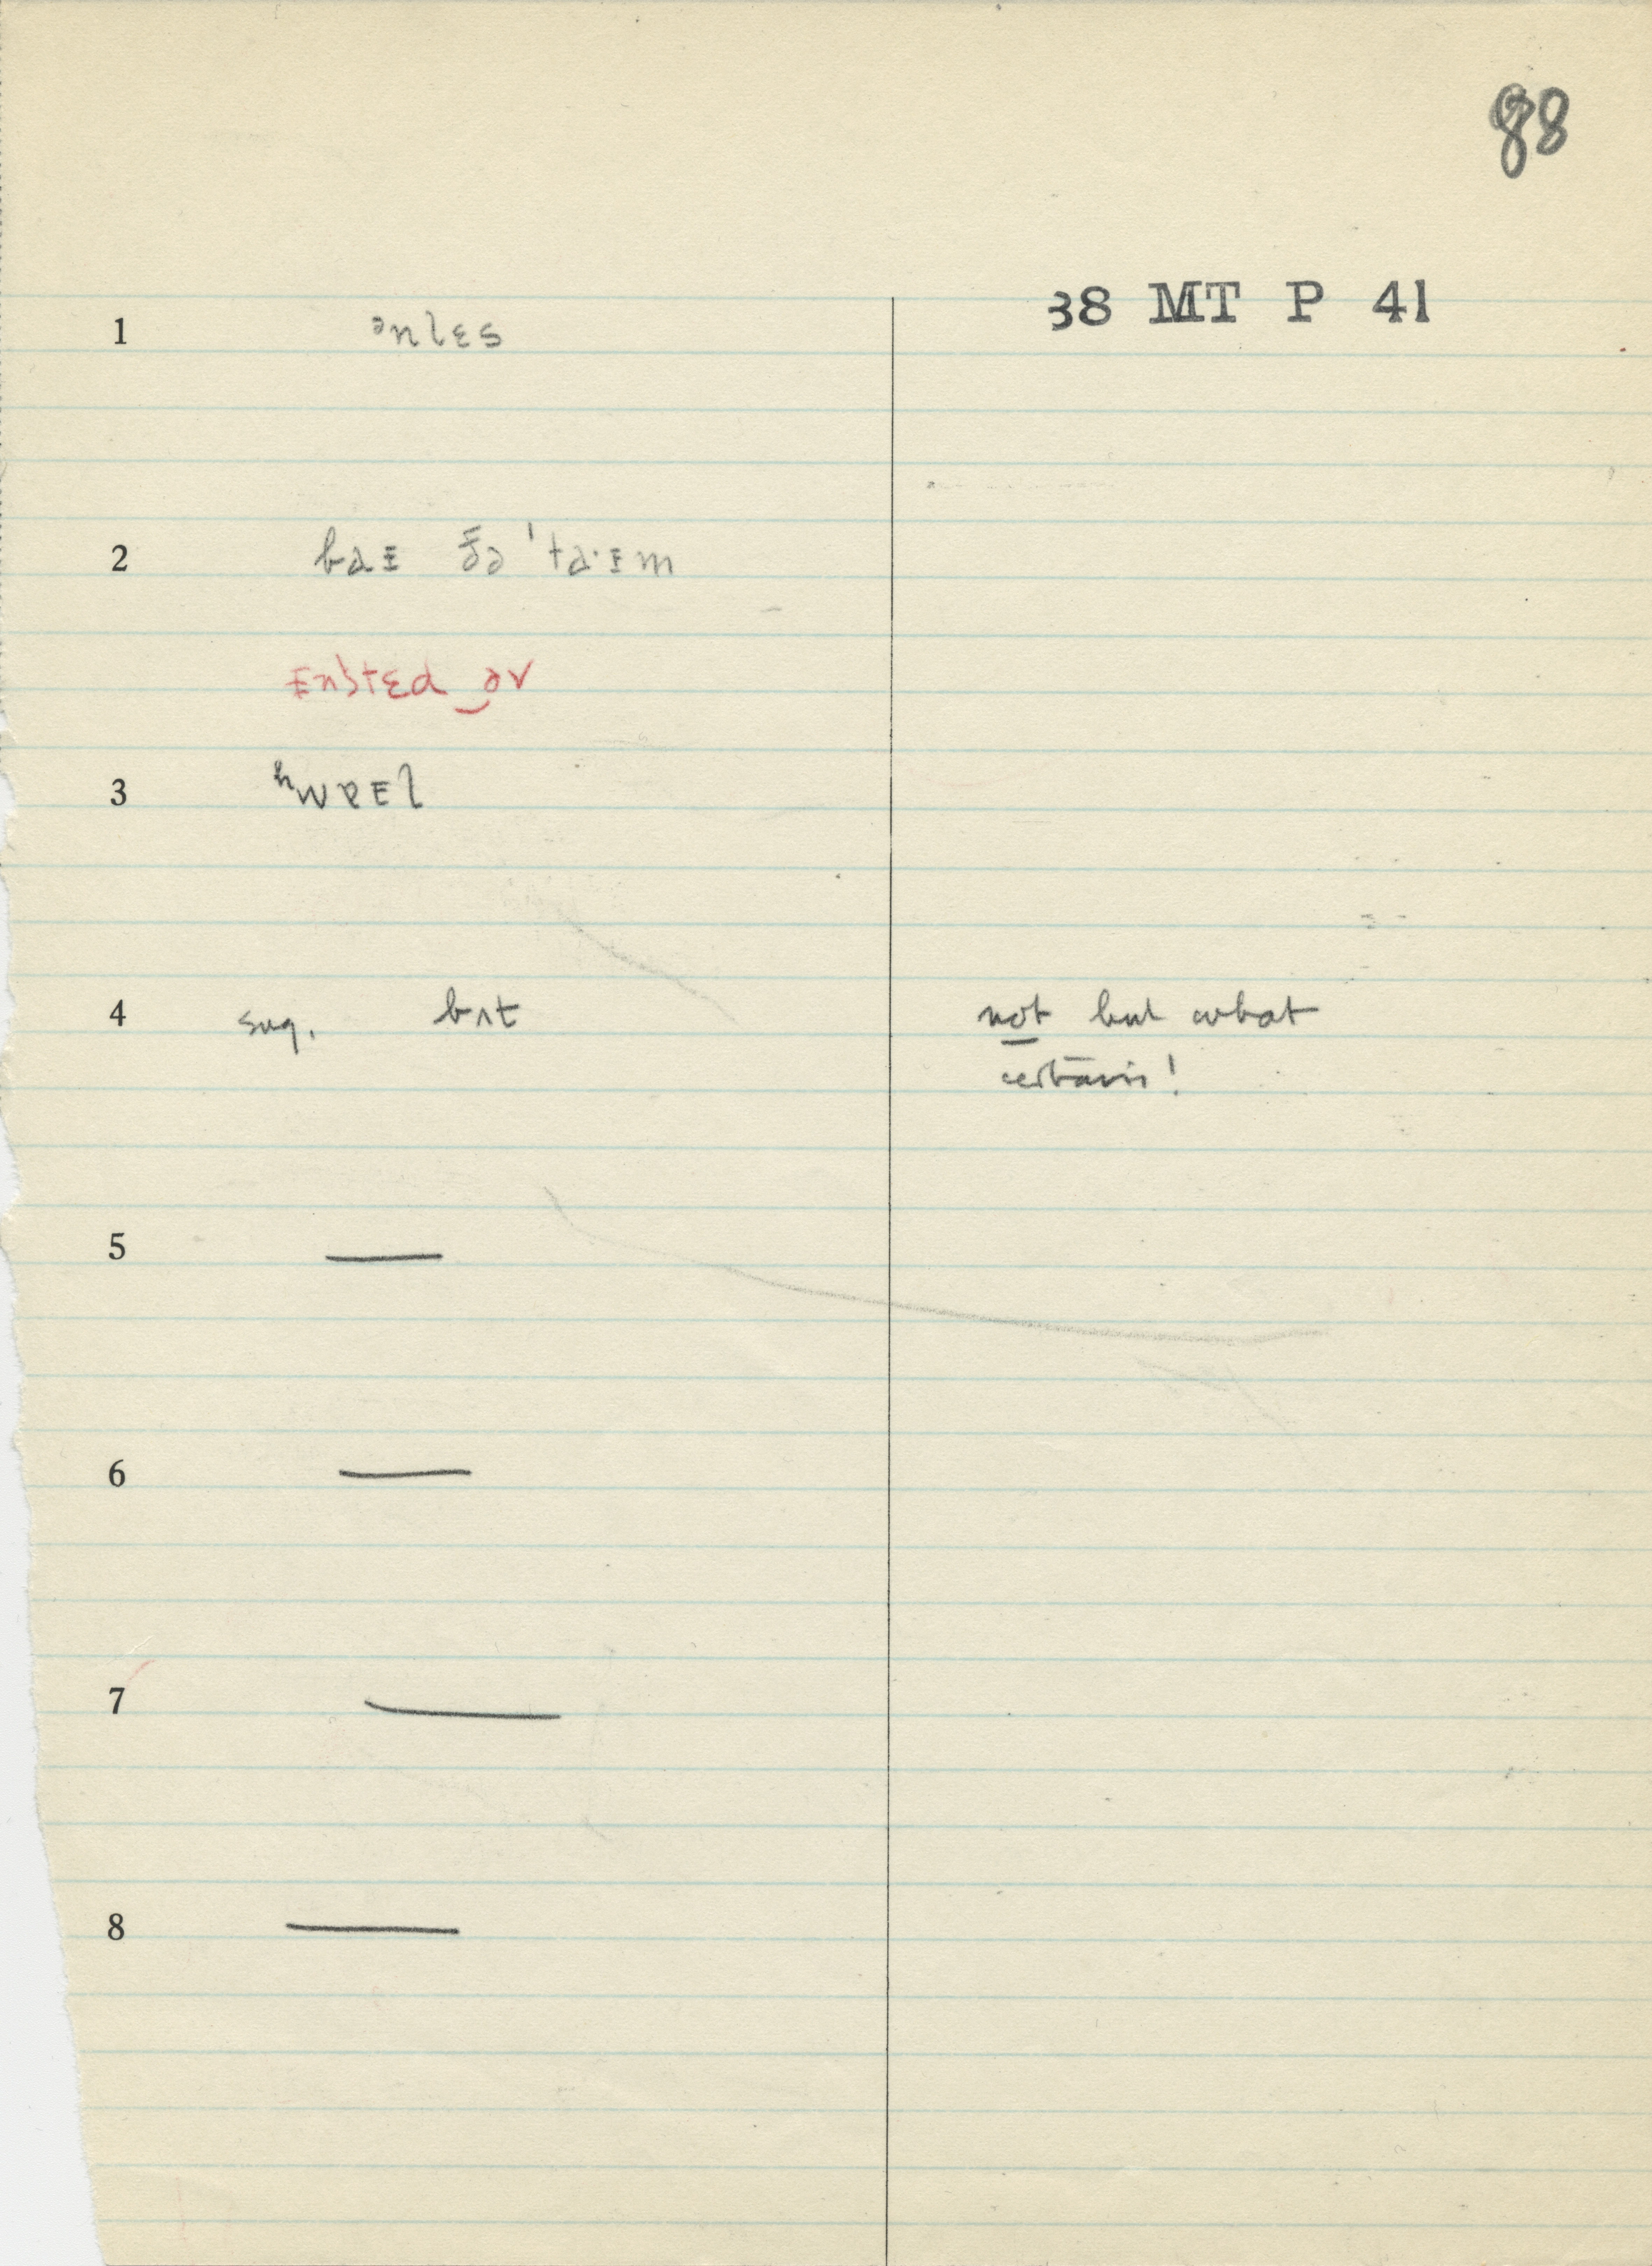 88
38 MT P 41
1 ənlɛs
2 baɪ ðə 'ta·ɪm
ɪnstɛd‿əv
3 ʰwɐɪl
4 sug. bʌt not but what
certain!
5 —
6 —
7 —
8 —